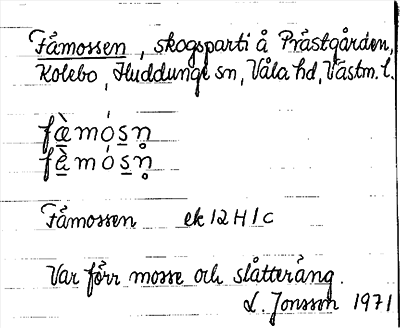 Fåmossen, skogsparti å Prästgården,
Kolebo, Huddunge sn, Våla hd, Västm. l.
fà̱mósṇ
fà̱mósn̥
Fåmossen ek 12 H 1 c
Var förr mosse och slåtteräng.
L. Jonsson 1971